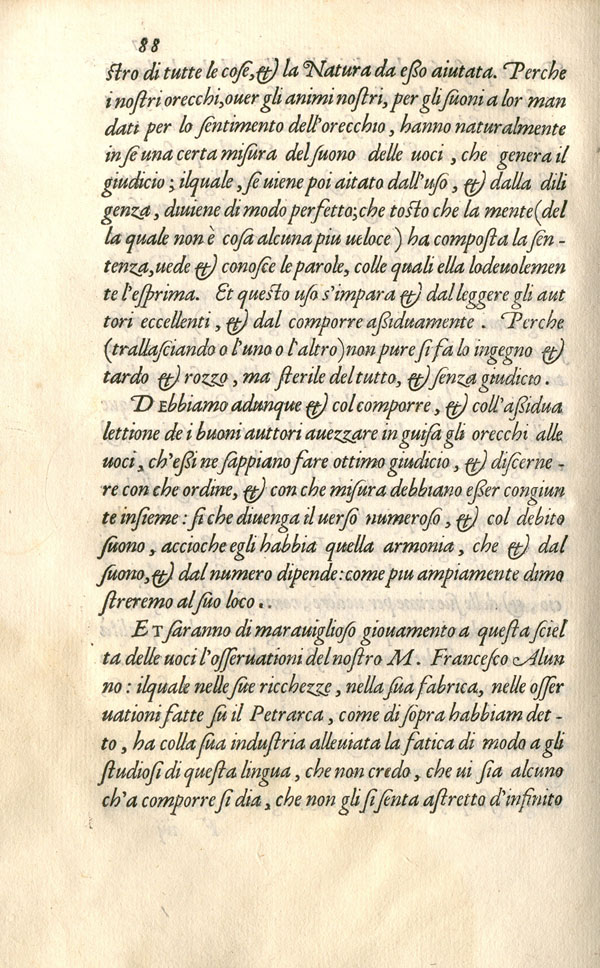 88
ſtro di tutte le coſe, & la Natura da eßo aiutata. Perche
i noſtri orecchi, ouer gli animi noſtri, per gli ſuoni a lor man
dati per lo ſentimento dell'orecchio, hanno naturalmente
in ſe una certa miſura del ſuono delle uoci, che genera il
giudicio; ilquale, ſe uiene poi aitato dall'uſo, & dalla dili
genza, diuiene di modo perfetto; che toſto che la mente (del
la quale non è coſa alcuna piu ueloce) ha compoſta la ſen-
tenza, uede & conoſce le parole, colle quali ella lodeuolemen
te l'eſprima. Et queſto uſo s'impara & dal leggere gli aut
tori eccellenti, & dal comporre aßiduamente. Perche
(trallaſciando o l'uno o l'altro) non pure ſi fa lo ingegno &
tardo & rozzo, ma ſterile del tutto, & ſenza giudicio.
DEbbiamo adunque & col comporre, & coll'aßidua
lettione de i buoni auttori auezzare in guiſa gli orecchi alle
uoci, ch'eßi ne ſappiano fare ottimo giudicio, & diſcerne-
re con che ordine, & con che miſura debbiano eßer congiun
te inſieme: ſi che diuenga il uerſo numeroſo, & col debito
ſuono, accioche egli habbia quella armonia, che & dal
ſuono, & dal numero dipende: come piu ampiamente dimo
ſtreremo al ſuo loco..
ET ſaranno di marauiglioſo giouamento a queſta ſciel
ta delle uoci l'oſſeruationi del noſtro M. Franceſco Alun
no: ilquale nelle ſue ricchezze, nella ſua fabrica, nelle oſſer
uationi fatte ſu il Petrarca, come di ſopra habbiam det-
to, ha colla ſua induſtria alleuiata la fatica di modo a gli
ſtudioſi di queſta lingua, che non credo, che ui ſia alcuno
ch'a comporre ſi dia, che non gli ſi ſenta aſtretto d'infinito